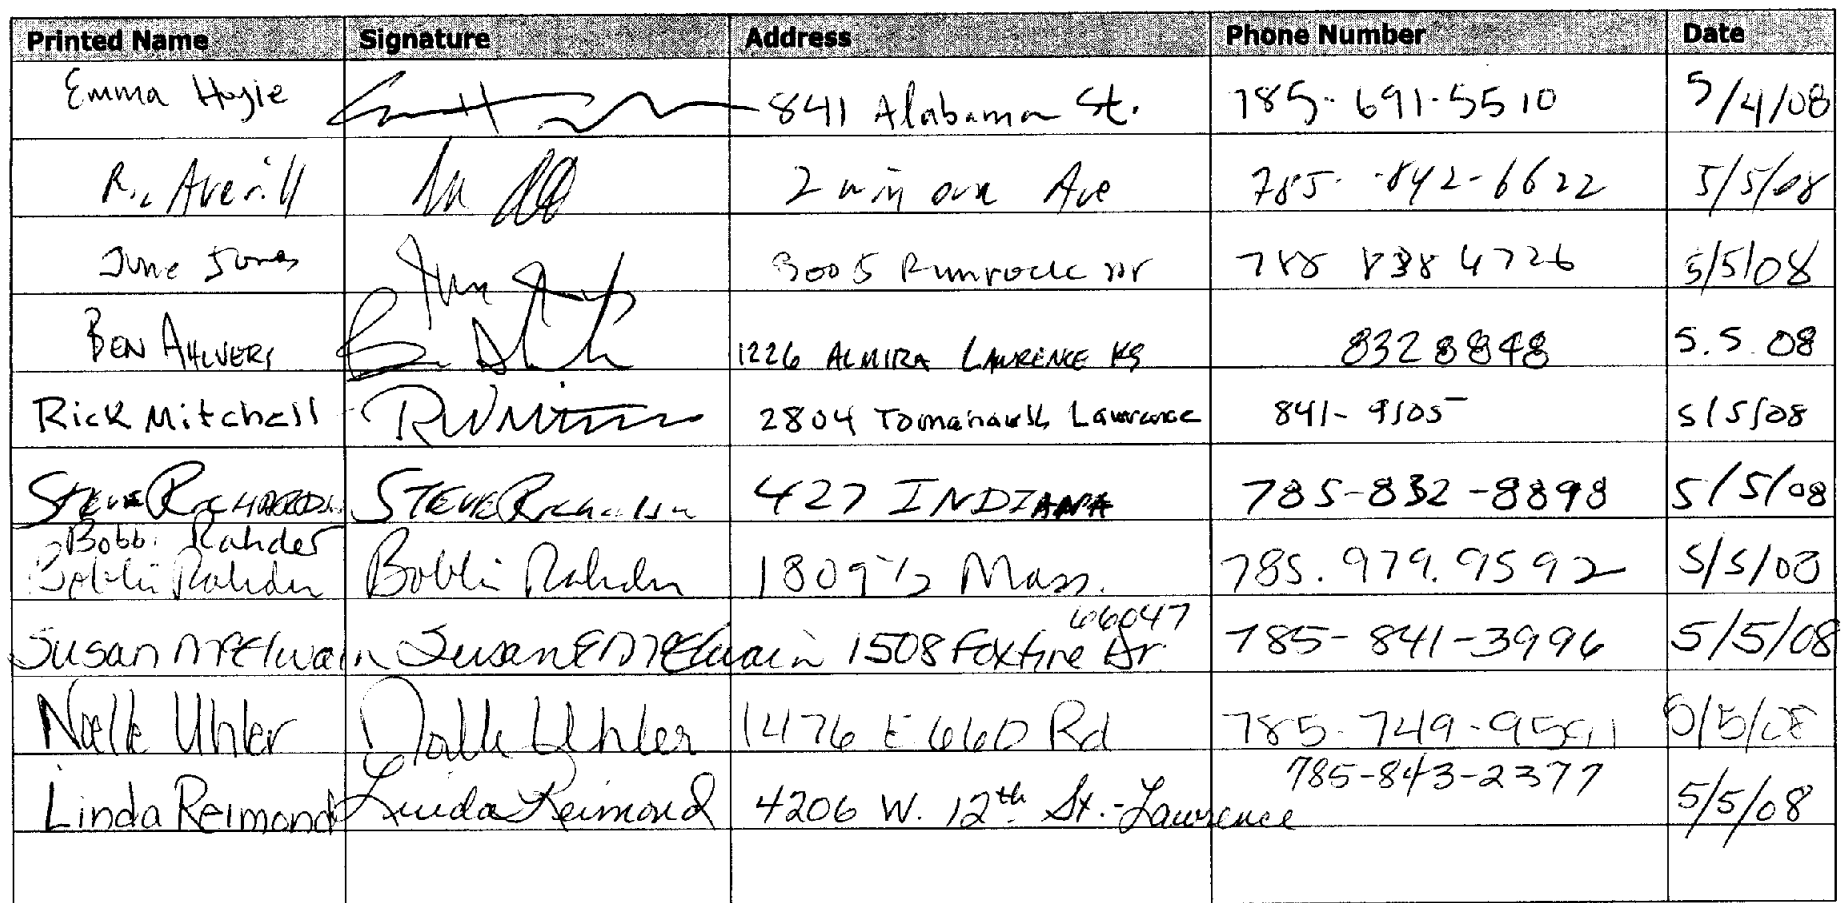 Printed Name Signature Address Phone Number Date
Emma Hogie 841 Alabama St. 785-691-5510 5/4/08
Ric Averill 2 Ave 785-842-6622 5/5/08
June Jones June Jones 3005 Rimrock Dr 785 838 4726 5/5/08
BEN AHLVERS 1226 ALMIRA LAWRENCE KS 8328848 5.5.08
Rick Mitchell 2804 Tomahawk Lawrence 841-9105 5/5/08
STEVE RICHARDSON STEVE Richardson 427 INDIANA 785-832-8898 5/5/08
Bobbi Rahder
Bobbi Rahder Bobbi Rahder 1809 1/2 Mass. 785.979.9592 5/5/08
66047
Susan McElwain Susan E McElwain 1508 Foxfire Dr 785-841-3996 5/5/08
Noelle Uhler Noelle Uhler 1476 E 660 Rd 785-749-9591 5/5/08
Linda Reimond Linda Reimond 4206 W. 12th St.-Lawrence 785-843-2377 5/5/08